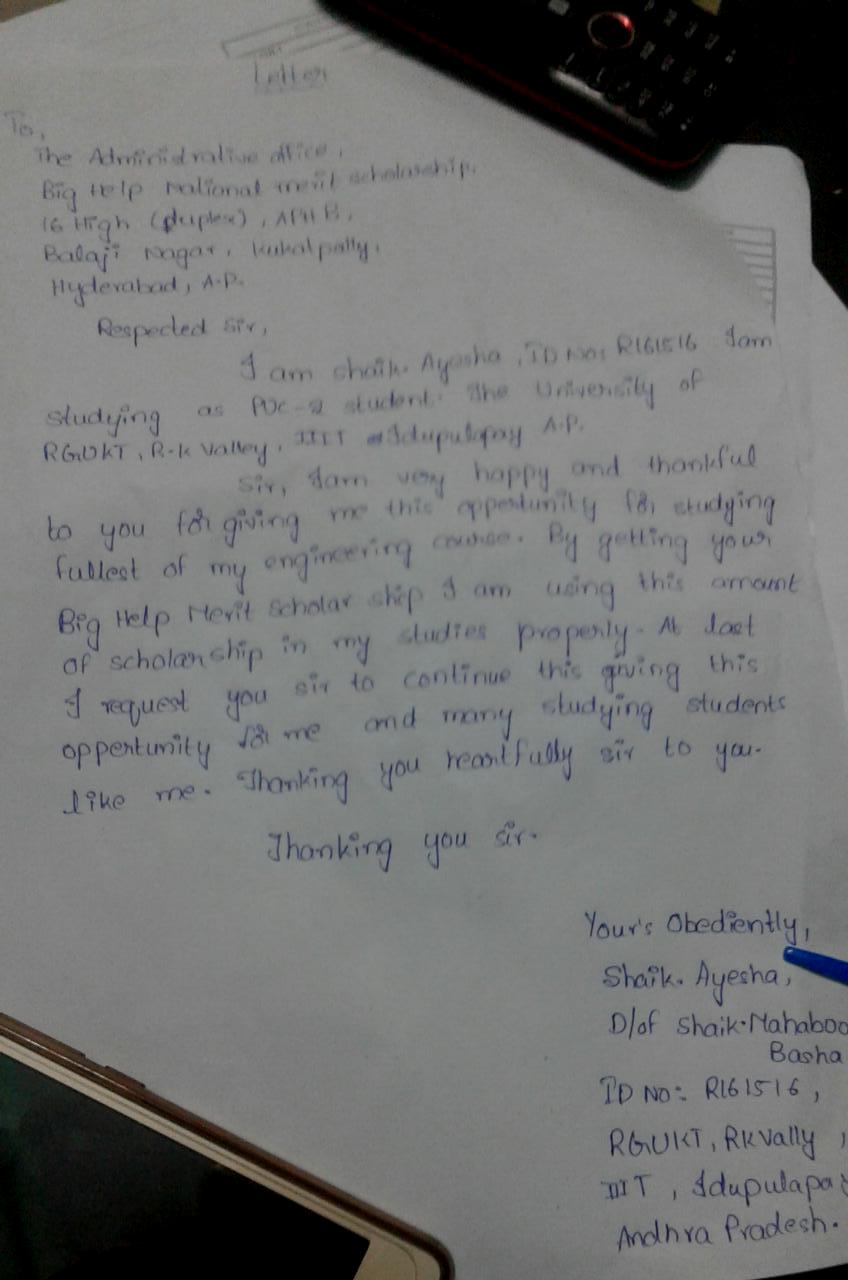 Letter
To,
The Administrative office,
Big Help National merit scholarship.
16 High (duplex), APHB,
Balaji Nagar, kukatpally,
Hyderabad, A.P.
Respected Sir,
I am shaik. Ayesha, ID No: R161516 I am
studying as PUC-2 student. The University of
RGUKT, R.K Valley, IIIT Idupulapay A.P.
Sir, I am very happy and thankful
to you for giving me this oppertunity for studying
fullest of my engineering course. By getting your
Big Help Merit Scholar ship I am using this amount
of scholarship in my studies properly. At last
I request you sir to continue this giving this
oppertunity for me and many studying students
like me. Thanking you heartfully sir to you.
Thanking you sir.
Your's Obediently,
Shaik. Ayesha,
D/of Shaik.Mahaboo
Basha
ID No:- R161516,
RGUKT, RKvally,
IIIT, Idupulapay
Andhra Pradesh.